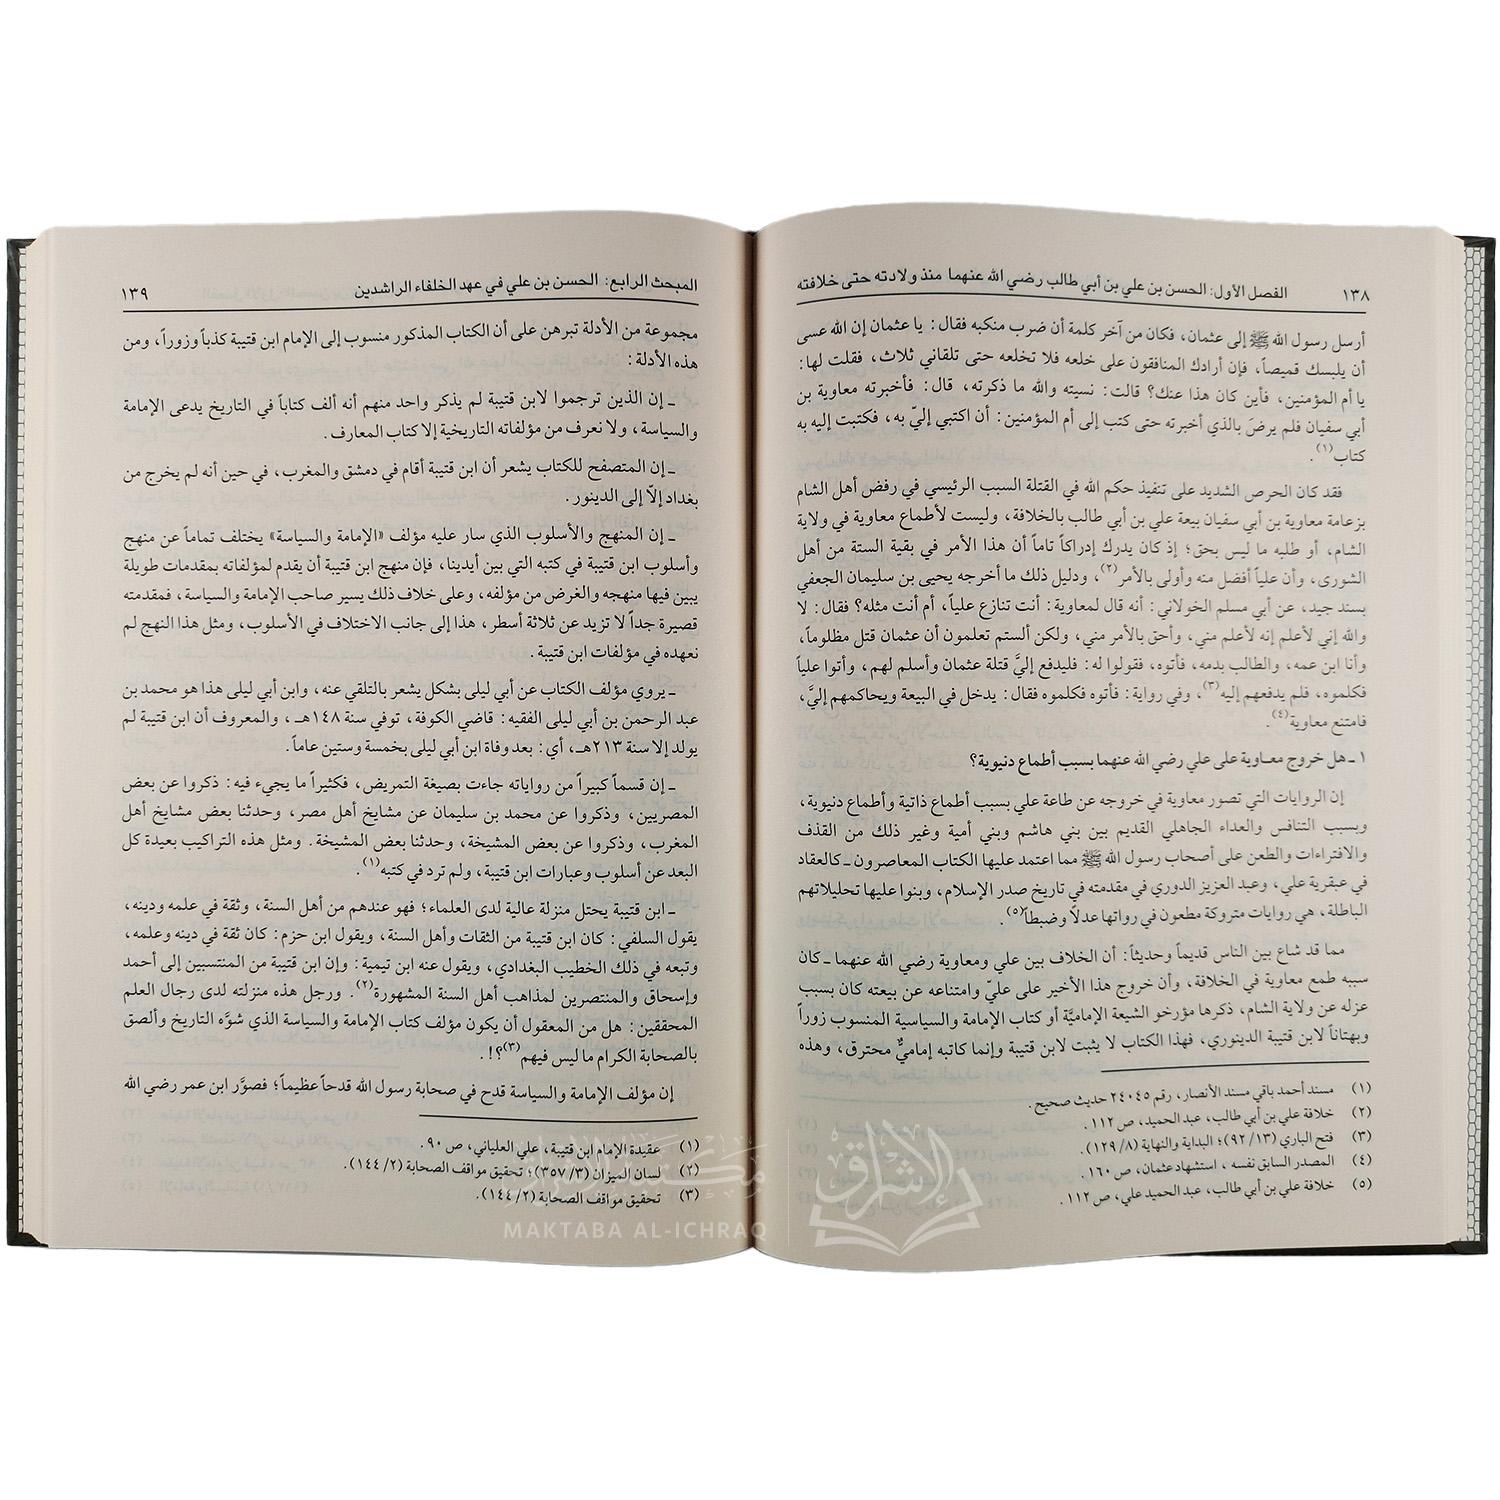 ١٣٨ الفصل الأول: الحسن بن علي بن أبي طالب رضي الله عنهما منذ ولادته حتى خلافته
أرسل رسول الله ﷺ إلى عثمان، فكان من آخر كلمة أن ضرب منكبه فقال: يا عثمان إن الله عسى
أن يلبسك قميصاً، فإن أرادك المنافقون على خلعه فلا تخلعه حتى تلقاني ثلاث، فقلت لها:
يا أم المؤمنين، فأين كان هذا عنك؟ قالت: نسيته والله ما ذكرته، قال: فأخبرته معاوية بن
أبي سفيان فلم يرضَ بالذي أخبرته حتى كتب إلى أم المؤمنين: أن اكتبي إليّ به، فكتبت إليه به
كتاب(١).
فقد كان الحرص الشديد على تنفيذ حكم الله في القتلة السبب الرئيسي في رفض أهل الشام
بزعامة معاوية بن أبي سفيان بيعة علي بن أبي طالب بالخلافة، وليست لأطماع معاوية في ولاية
الشام، أو طلبه ما ليس بحق؛ إذ كان يدرك إدراكاً تاماً أن هذا الأمر في بقية الستة من أهل
الشورى، وأن علياً أفضل منه وأولى بالأمر(٢)، ودليل ذلك ما أخرجه يحيى بن سليمان الجعفي
بسند جيد، عن أبي مسلم الخولاني: أنه قال لمعاوية: أنت تنازع علياً، أم أنت مثله؟ فقال: لا
والله إني لأعلم إنه لأعلم مني، وأحق بالأمر مني، ولكن ألستم تعلمون أن عثمان قتل مظلوماً،
وأنا ابن عمه، والطالب بدمه، فأتوه، فقولوا له: فليدفع إليَّ قتلة عثمان وأسلم لهم، وأتوا علياً
فكلموه، فلم يدفعهم إليه(٣)، وفي رواية: فأتوه فكلموه فقال: يدخل في البيعة ويحاكمهم إليَّ،
فامتنع معاوية(٤).
١ ـ هل خروج معـاوية على علي رضي الله عنهما بسبب أطماع دنيوية؟
إن الروايات التي تصور معاوية في خروجه عن طاعة علي بسبب أطماع ذاتية وأطماع دنيوية،
وبسبب التنافس والعداء الجاهلي القديم بين بني هاشم وبني أمية وغير ذلك من القذف
والافتراءات والطعن على أصحاب رسول الله ﷺ مما اعتمد عليها الكتاب المعاصرون ـ كالعقاد
في عبقرية علي، وعبد العزيز الدوري في مقدمته في تاريخ صدر الإسلام، وبنوا عليها تحليلاتهم
الباطلة، هي روايات متروكة مطعون في رواتها عدلاً وضبطاً(٥).
مما قد شاع بين الناس قديماً وحديثاً: أن الخلاف بين علي ومعاوية رضي الله عنهما ـ كان
سببه طمع معاوية في الخلافة، وأن خروج هذا الأخير على عليّ وامتناعه عن بيعته كان بسبب
عزله عن ولاية الشام، ذكرها مؤرخو الشيعة الإماميَّة أو كتاب الإمامة والسياسية المنسوب زوراً
وبهتاناً لابن قتيبة الدينوري، فهذا الكتاب لا يثبت لابن قتيبة وإنما كاتبه إماميٌّ محترق، وهذه
(١) مسند أحمد باقي مسند الأنصار، رقم ٢٤٠٤٥ حديث صحيح.
(٢) خلافة علي بن أبي طالب، عبد الحميد، ص ١١٢.
(٣) فتح الباري (١٣/ ٩٢)؛ البداية والنهاية (٨/ ١٢٩).
(٤) المصدر السابق نفسه، استشهاد عثمان، ص ١٦٠.
(٥) خلافة علي بن أبي طالب، عبد الحميد علي، ص ١١٢.
المبحث الرابع: الحسن بن علي في عهد الخلفاء الراشدين ١٣٩
مجموعة من الأدلة تبرهن على أن الكتاب المذكور منسوب إلى الإمام ابن قتيبة كذباً وزوراً، ومن
هذه الأدلة:
ـ إن الذين ترجموا لابن قتيبة لم يذكر واحد منهم أنه ألف كتاباً في التاريخ يدعى الإمامة
والسياسة، ولا نعرف من مؤلفاته التاريخية إلا كتاب المعارف.
ـ إن المتصفح للكتاب يشعر أن ابن قتيبة أقام في دمشق والمغرب، في حين أنه لم يخرج من
بغداد إلّا إلى الدينور.
ـ إن المنهج والأسلوب الذي سار عليه مؤلف «الإمامة والسياسة» يختلف تماماً عن منهج
وأسلوب ابن قتيبة في كتبه التي بين أيدينا، فإن منهج ابن قتيبة أن يقدم لمؤلفاته بمقدمات طويلة
يبين فيها منهجه والغرض من مؤلفه، وعلى خلاف ذلك يسير صاحب الإمامة والسياسة، فمقدمته
قصيرة جداً لا تزيد عن ثلاثة أسطر، هذا إلى جانب الاختلاف في الأسلوب، ومثل هذا النهج لم
نعهده في مؤلفات ابن قتيبة.
ـ يروي مؤلف الكتاب عن أبي ليلى بشكل يشعر بالتلقي عنه، وابن أبي ليلى هذا هو محمد بن
عبد الرحمن بن أبي ليلى الفقيه: قاضي الكوفة، توفي سنة ١٤٨هـ، والمعروف أن ابن قتيبة لم
يولد إلا سنة ٢١٣هـ، أي: بعد وفاة ابن أبي ليلى بخمسة وستين عاماً.
ـ إن قسماً كبيراً من رواياته جاءت بصيغة التمريض، فكثيراً ما يجيء فيه: ذكروا عن بعض
المصريين، وذكروا عن محمد بن سليمان عن مشايخ أهل مصر، وحدثنا بعض مشايخ أهل
المغرب، وذكروا عن بعض المشيخة، وحدثنا بعض المشيخة. ومثل هذه التراكيب بعيدة كل
البعد عن أسلوب وعبارات ابن قتيبة، ولم ترد في كتبه(١).
ـ ابن قتيبة يحتل منزلة عالية لدى العلماء؛ فهو عندهم من أهل السنة، وثقة في علمه ودينه،
يقول السلفي: كان ابن قتيبة من الثقات وأهل السنة، ويقول ابن حزم: كان ثقة في دينه وعلمه،
وتبعه في ذلك الخطيب البغدادي، ويقول عنه ابن تيمية: وإن ابن قتيبة من المنتسبين إلى أحمد
وإسحاق والمنتصرين لمذاهب أهل السنة المشهورة(٢). ورجل هذه منزلته لدى رجال العلم
المحققين: هل من المعقول أن يكون مؤلف كتاب الإمامة والسياسة الذي شوَّه التاريخ وألصق
بالصحابة الكرام ما ليس فيهم(٣)؟!.
إن مؤلف الإمامة والسياسة قدح في صحابة رسول الله قدحاً عظيماً؛ فصوَّر ابن عمر رضي الله
(١) عقيدة الإمام ابن قتيبة، علي العلياني، ص ٩٠.
(٢) لسان الميزان (٣/ ٣٥٧)؛ تحقيق مواقف الصحابة (٢/ ١٤٤).
(٣) تحقيق مواقف الصحابة (٢/ ١٤٤).
مكتبة الإشراق
MAKTABA AL-ICHRAQ
الإشراق